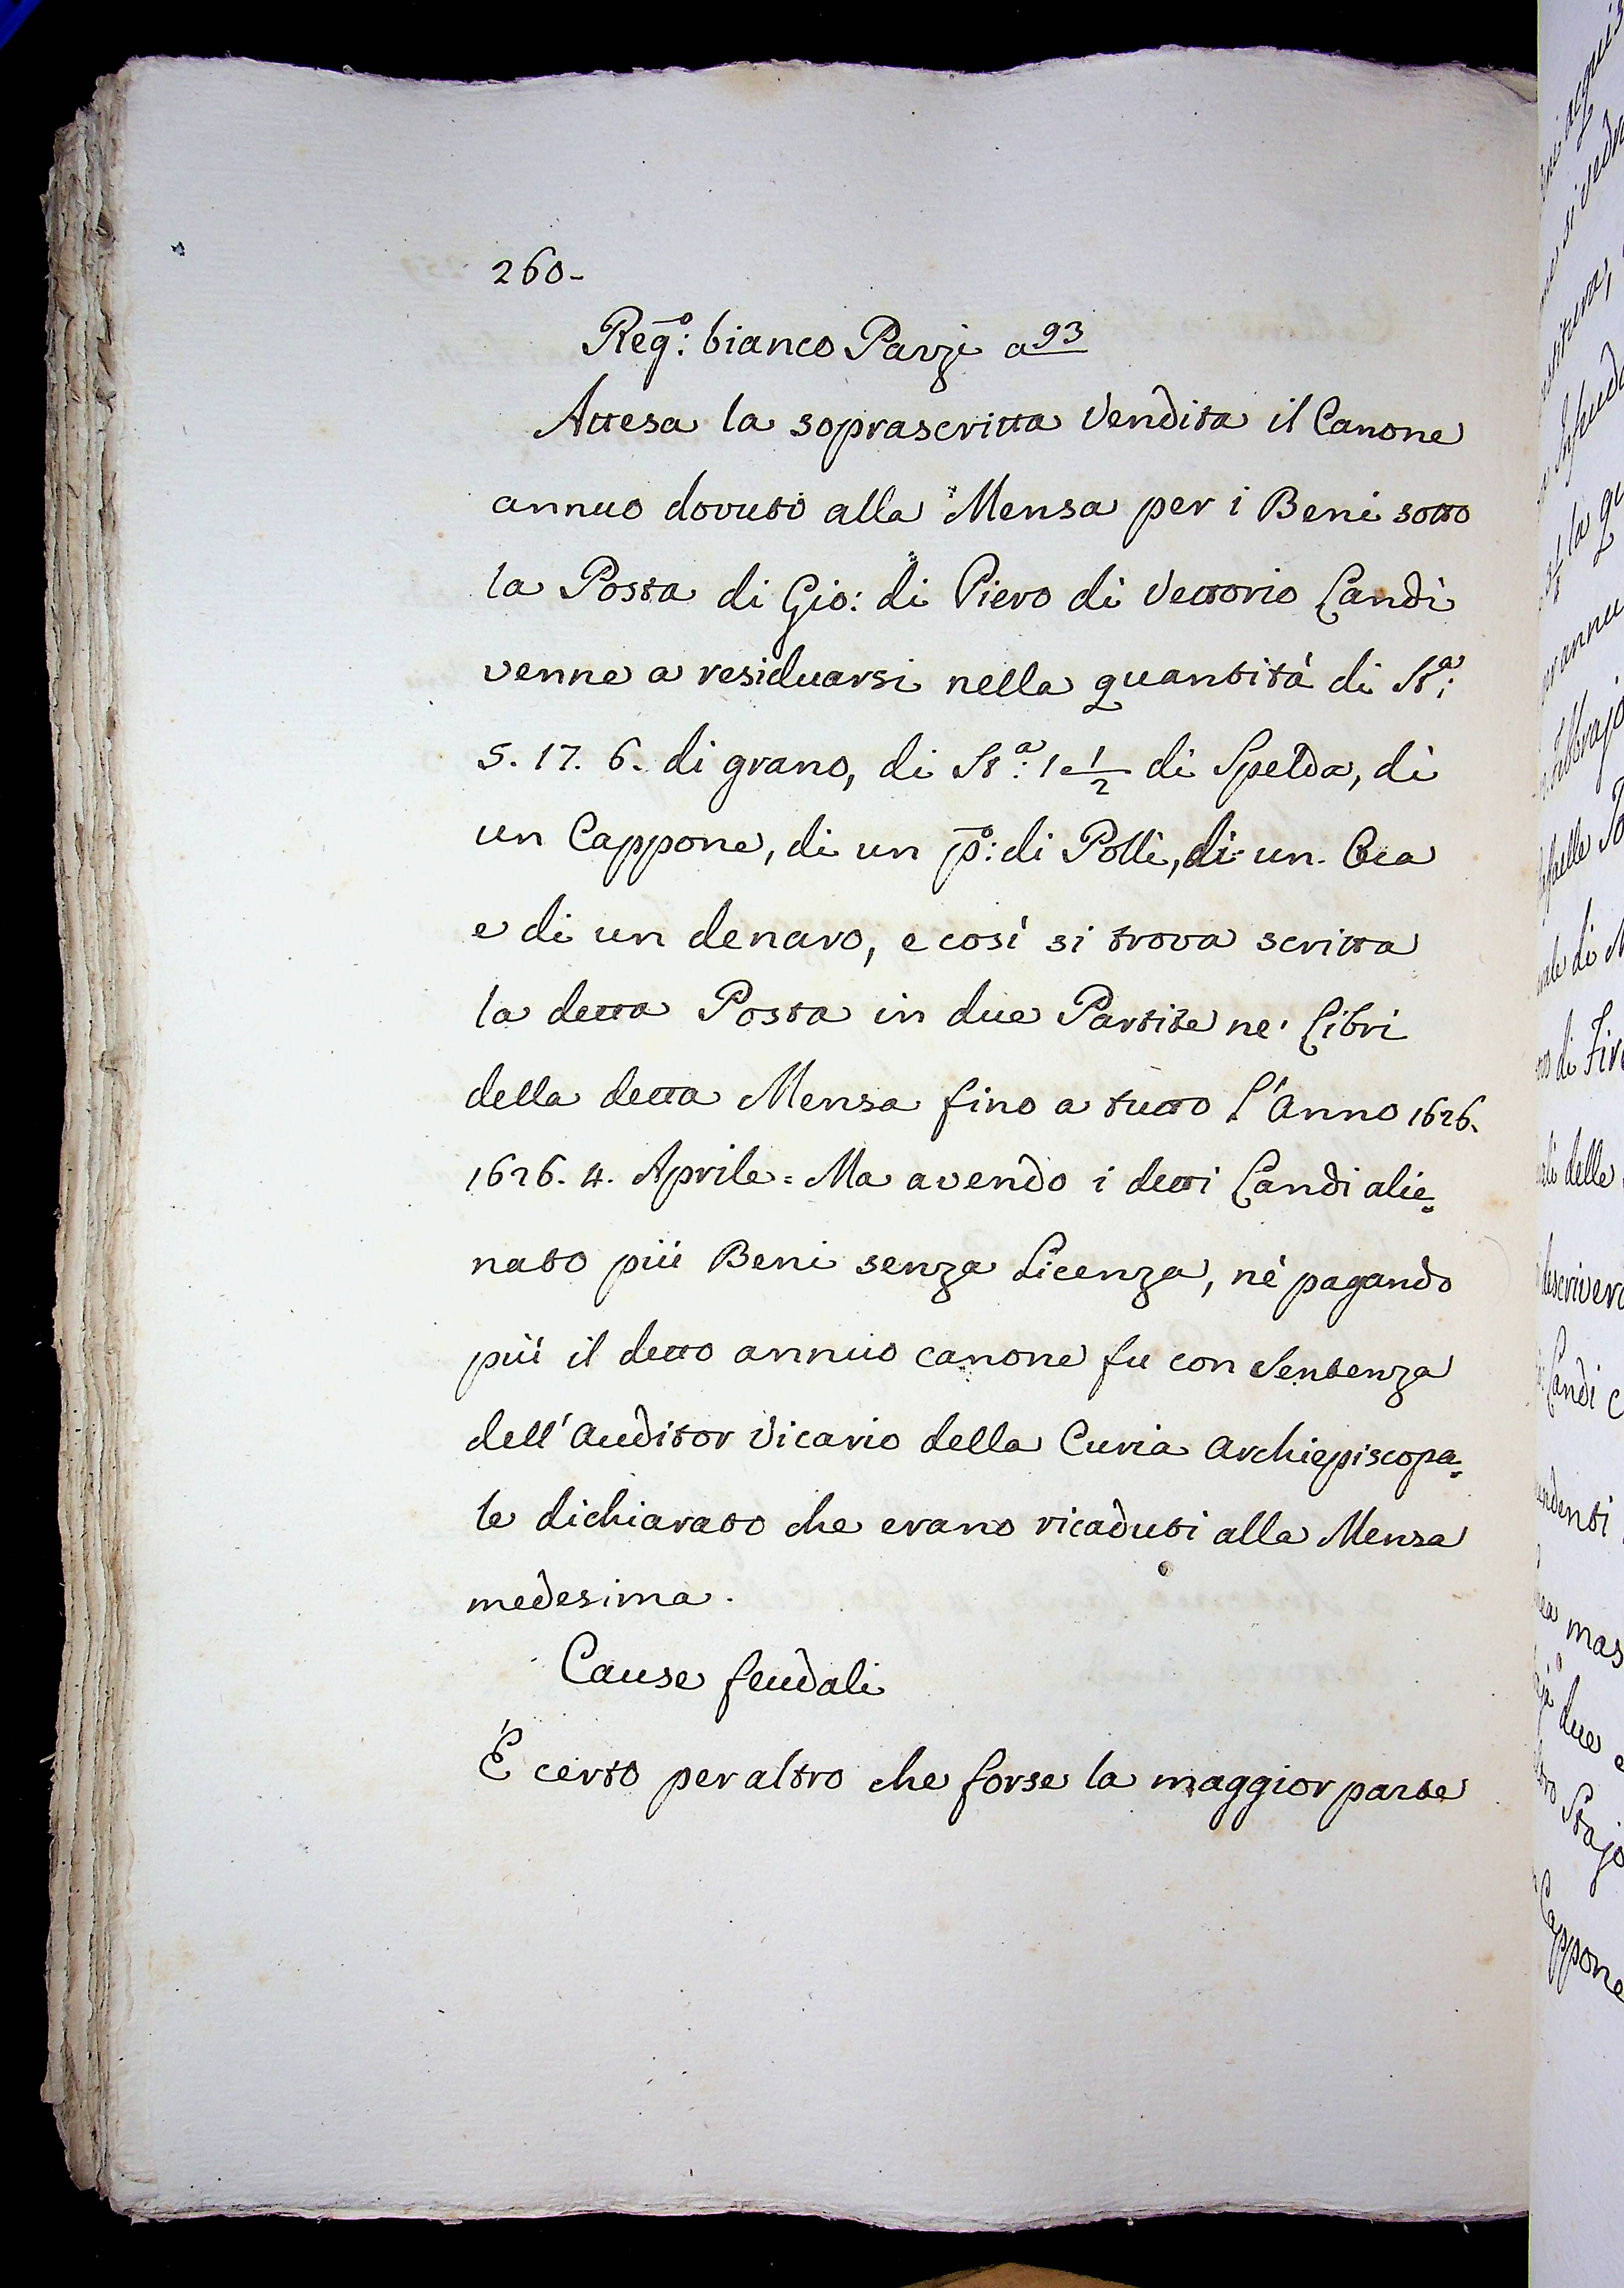 260-
Reg.º: bianco Pazzi a 93
Attesa la soprascritta Vendita il Canone
annuo dovuto alla Mensa per i Beni sotto
la Posta di Gio: di Piero di Vettorio Landi
venne a residuarsi nella quantità di St.ª:
5. 17. 6. di grano, di St.ª: 1 1/2 di Spelda, di
un Cappone, di un p.º: di Polli, di un Oca
e di un denaro, e così si trova scritta
la detta Posta in due Partite ne' Libri
della detta Mensa fino a tutto l'Anno 1626.
1626. 4. Aprile = Ma avendo i detti Landi alie=
nato più Beni senza Licenza, nè pagando
più il detto annuo canone fu con Sentenza
dell'Auditor Vicario della Curia Archiepiscopa=
le dichiarato che erano ricaduti alla Mensa
medesima.
Cause feudali
È certo per altro che forse la maggior parte